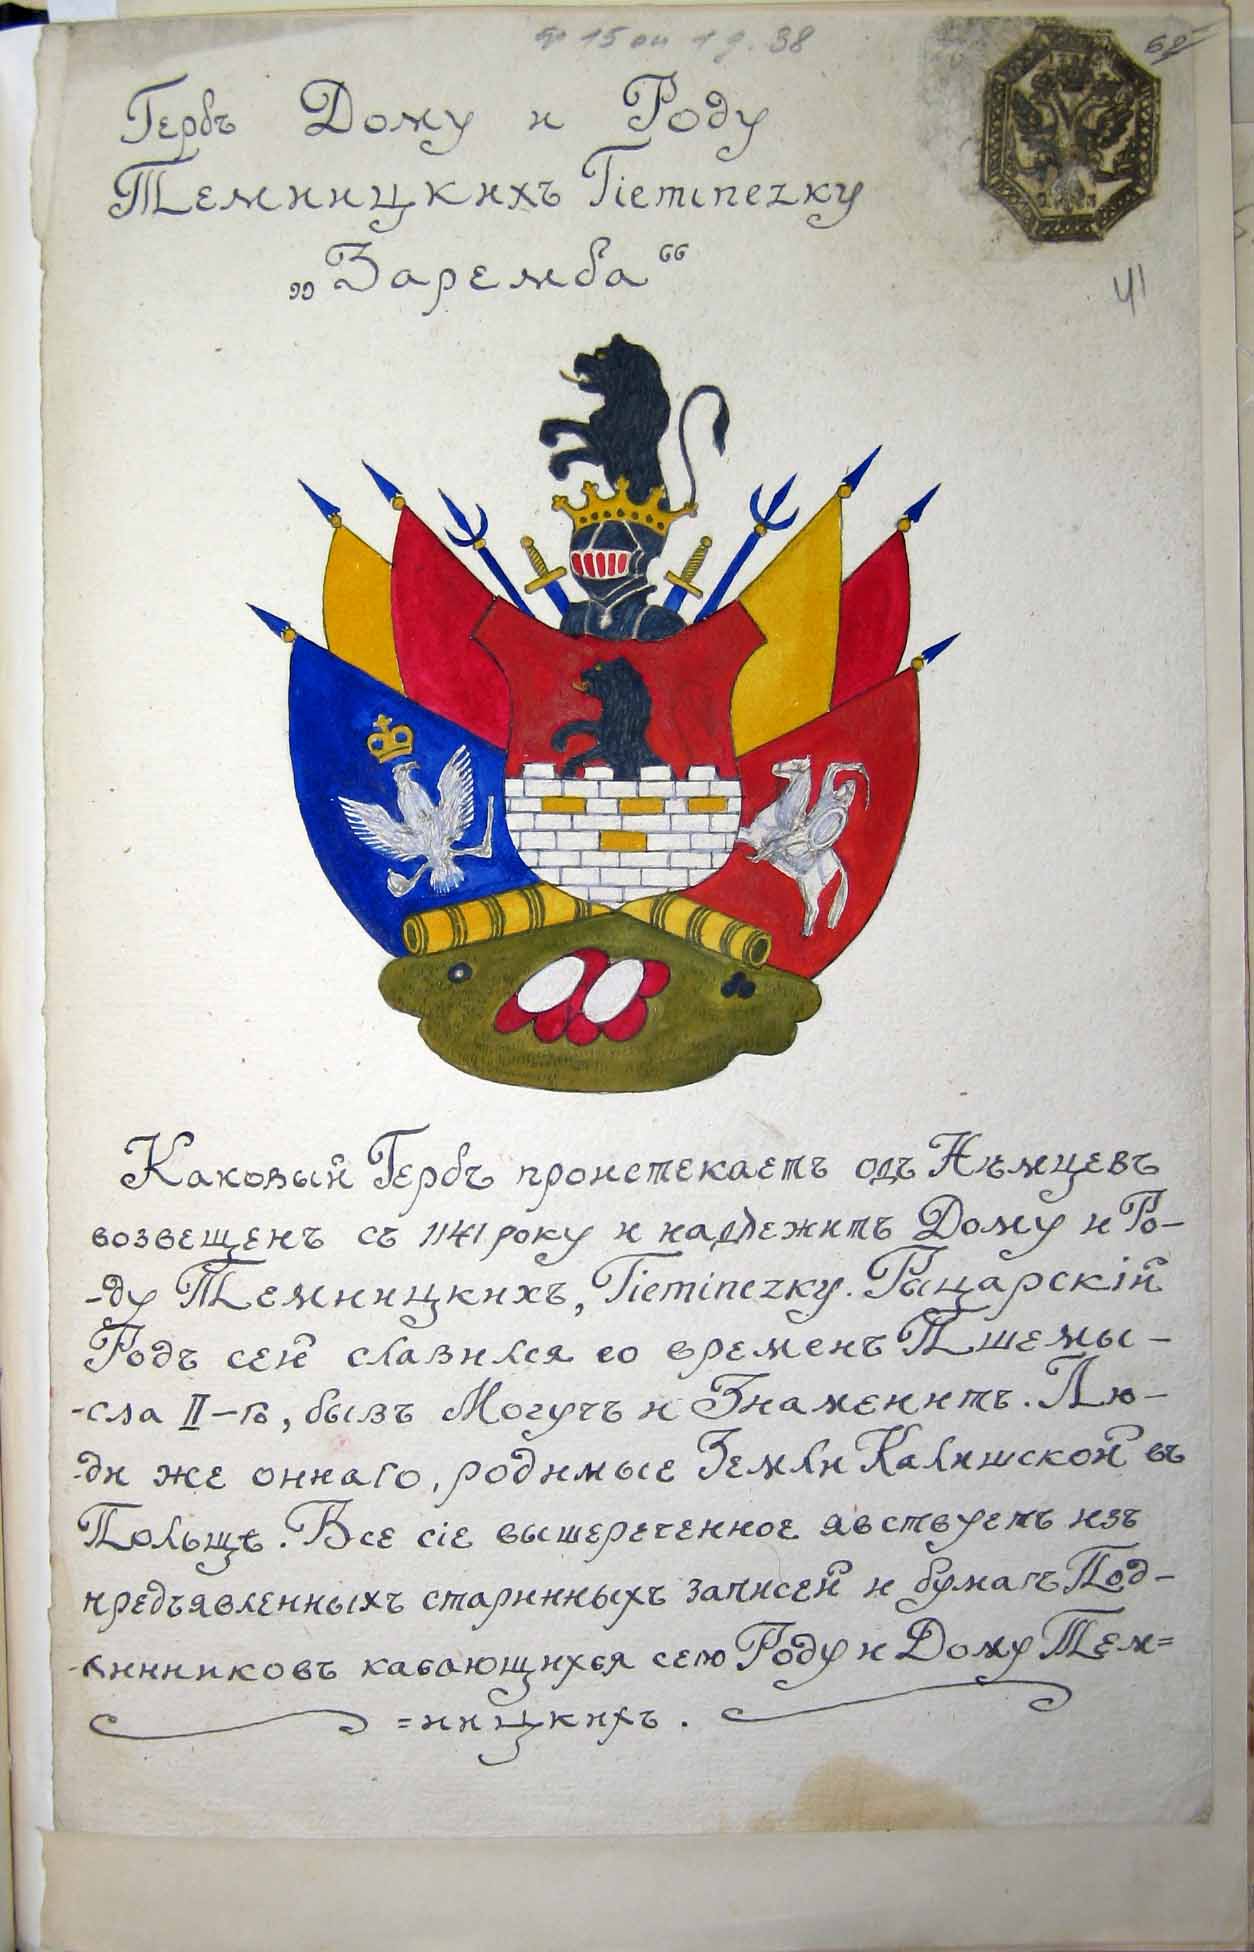 ф 15 оп 1 д. 38
62
Гербъ Дому и Роду
Теминицкихъ Tieminezky
„Заремба“
41
Каковый Гербъ проистекаетъ одъ Нѣмцевъ
возвещенъ съ 1141 року и надлежитъ Дому и Ро-
-ду Теминицкихъ, Tieminezky. Рыцарскій
Родъ сей славился со временъ Пшемы-
-сла II-го, былъ Могучъ и Знаменитъ. Лю-
-ди же оннаго, родимые Земли Калишской въ
Польщѣ. Все сіе вышереченное явствуетъ изъ
предъявленныхъ старинныхъ записей и бумагъ Под-
-линниковъ касающихся сему Роду и Дому Тем=
=ницкихъ.